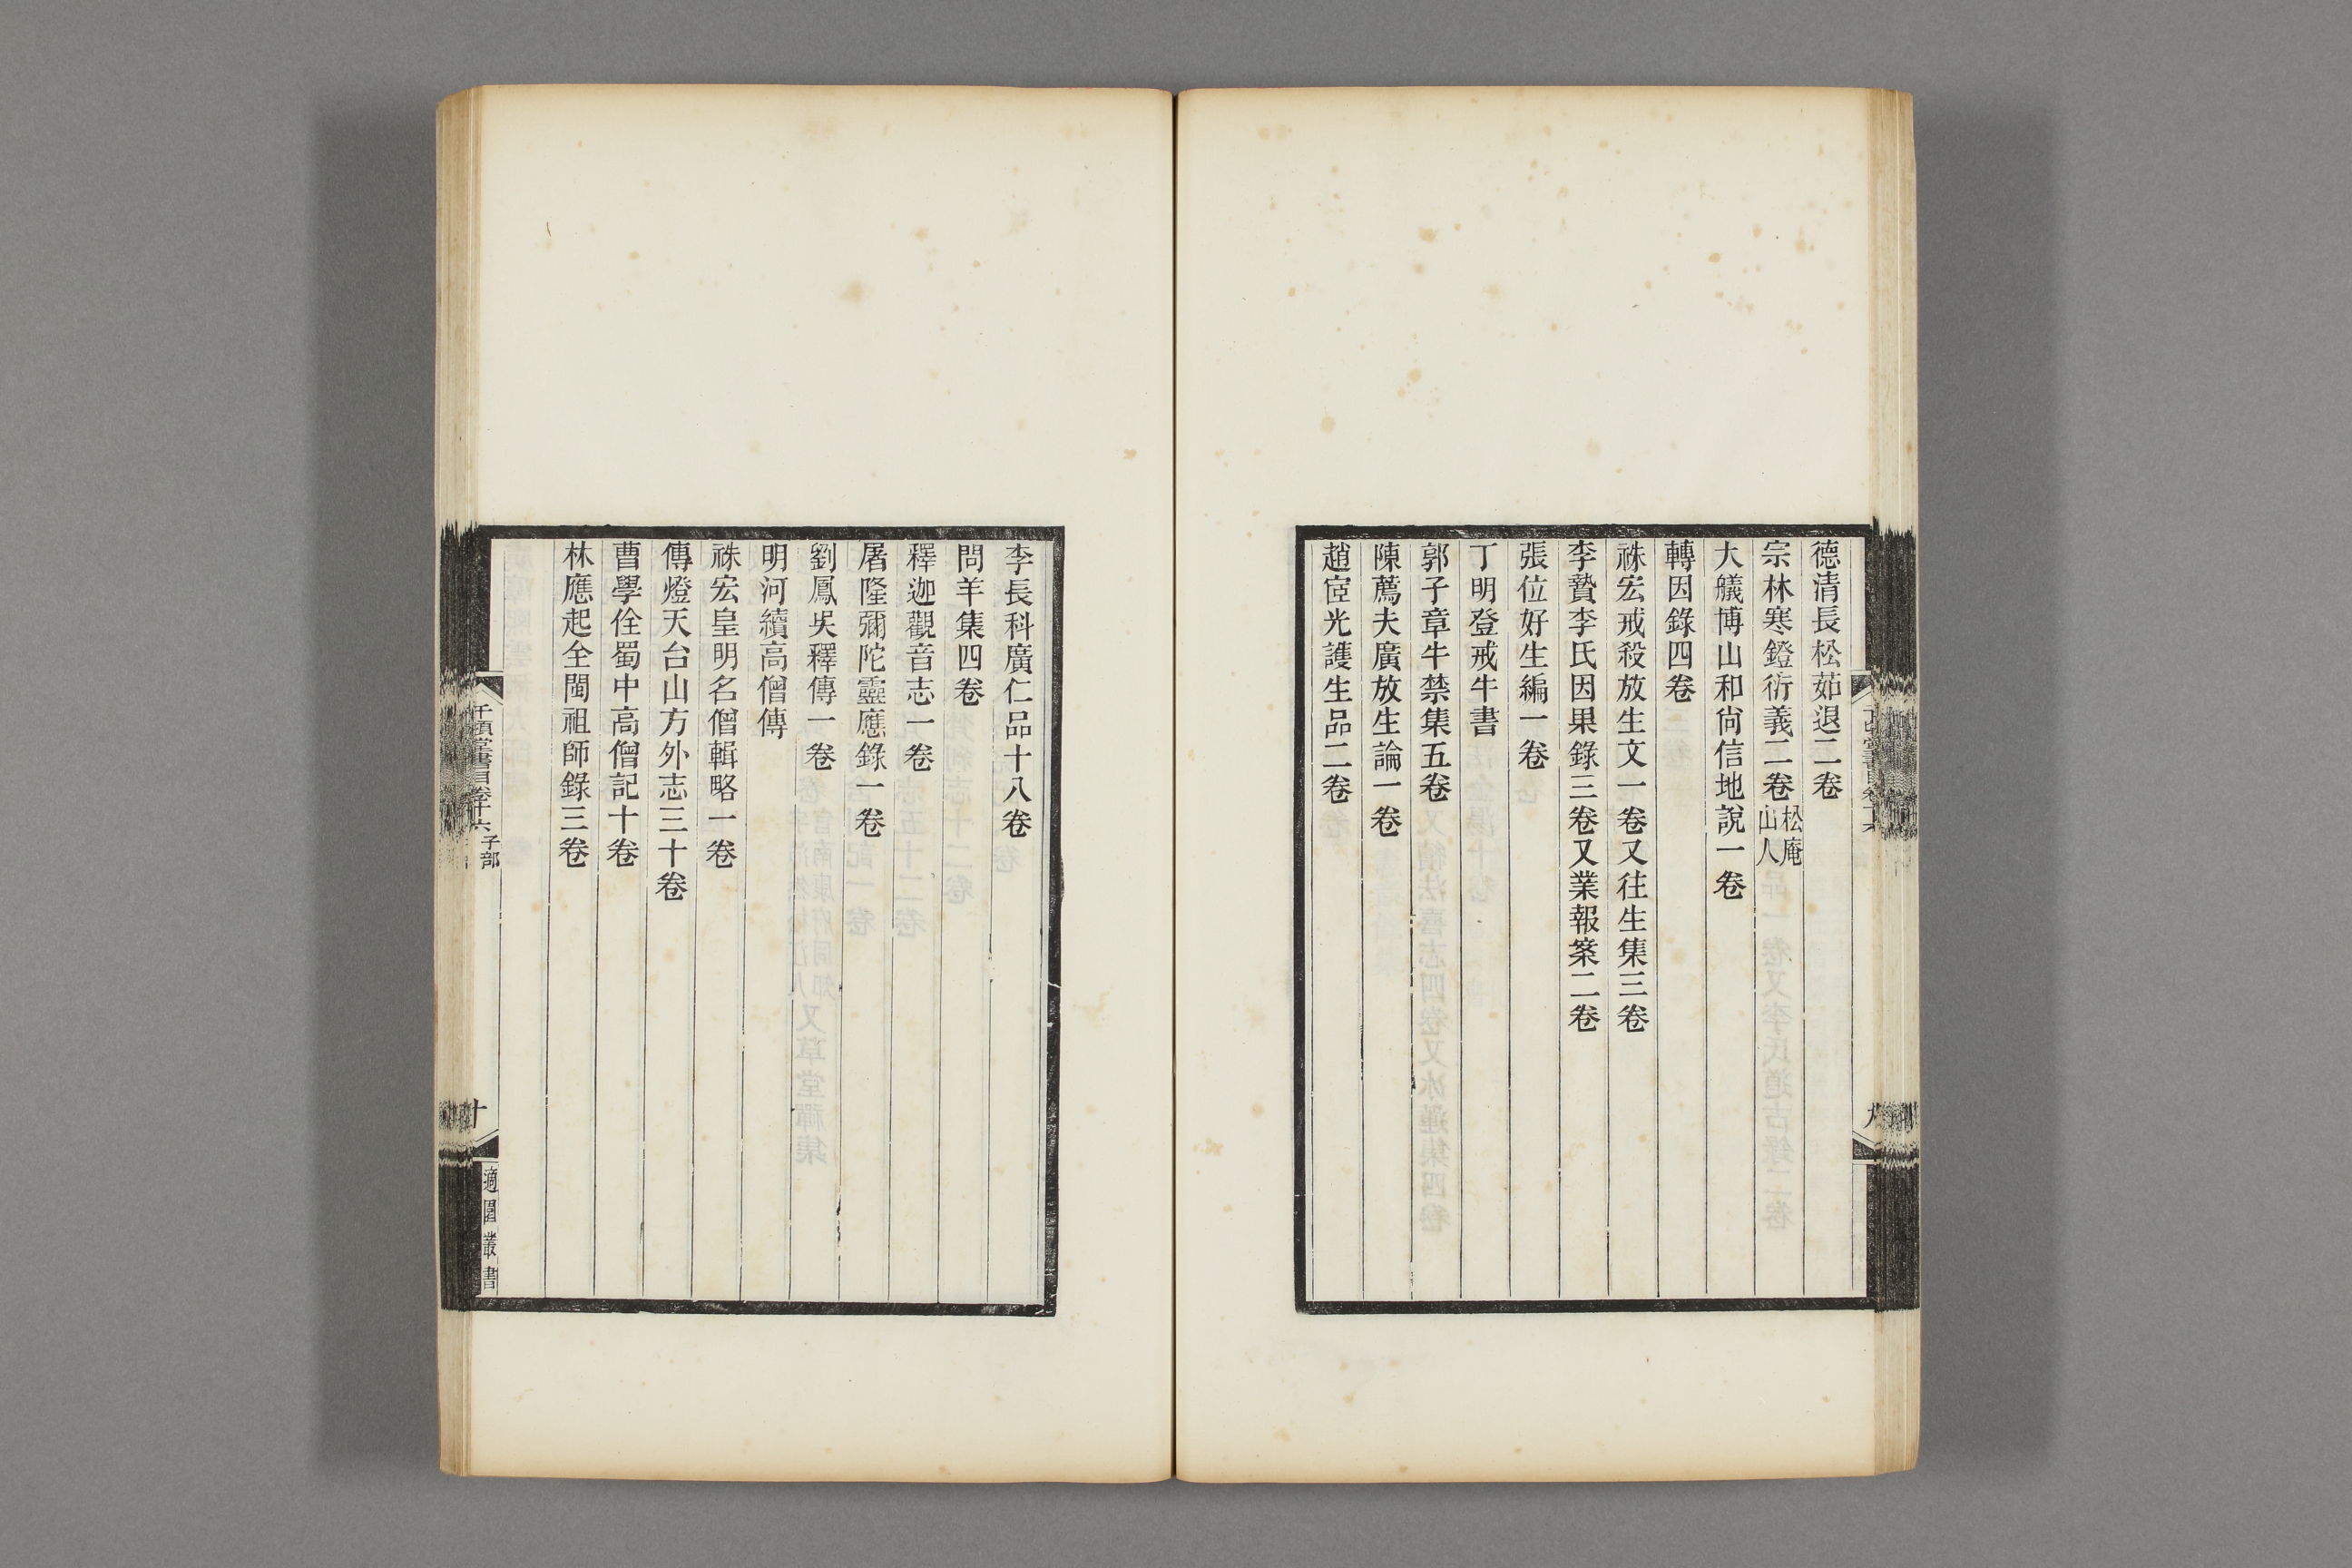 德清長松茹退二卷
宗林寒鐙衍義二卷松庵山人
大艤博山和尙信地說一卷
轉因錄四卷
祩宏戒殺放生文一卷又往生集三卷
李贄李氏因果錄三卷又業報案二卷
張位好生編一卷
丁明登戒牛書
郭子章牛禁集五卷
陳薦夫廣放生論一卷
趙宧光護生品二卷
九
李長科廣仁品十八卷
問羊集四卷
釋迦觀音志一卷
屠隆彌陀靈應錄一卷
劉鳳吳釋傳一卷
明河續高僧傳
祩宏皇明名僧輯略一卷
傳燈天台山方外志三十卷
曹學佺蜀中高僧記十卷
林應起全閩祖師錄三卷
千頃堂書目卷十六 子部
十
適園叢書